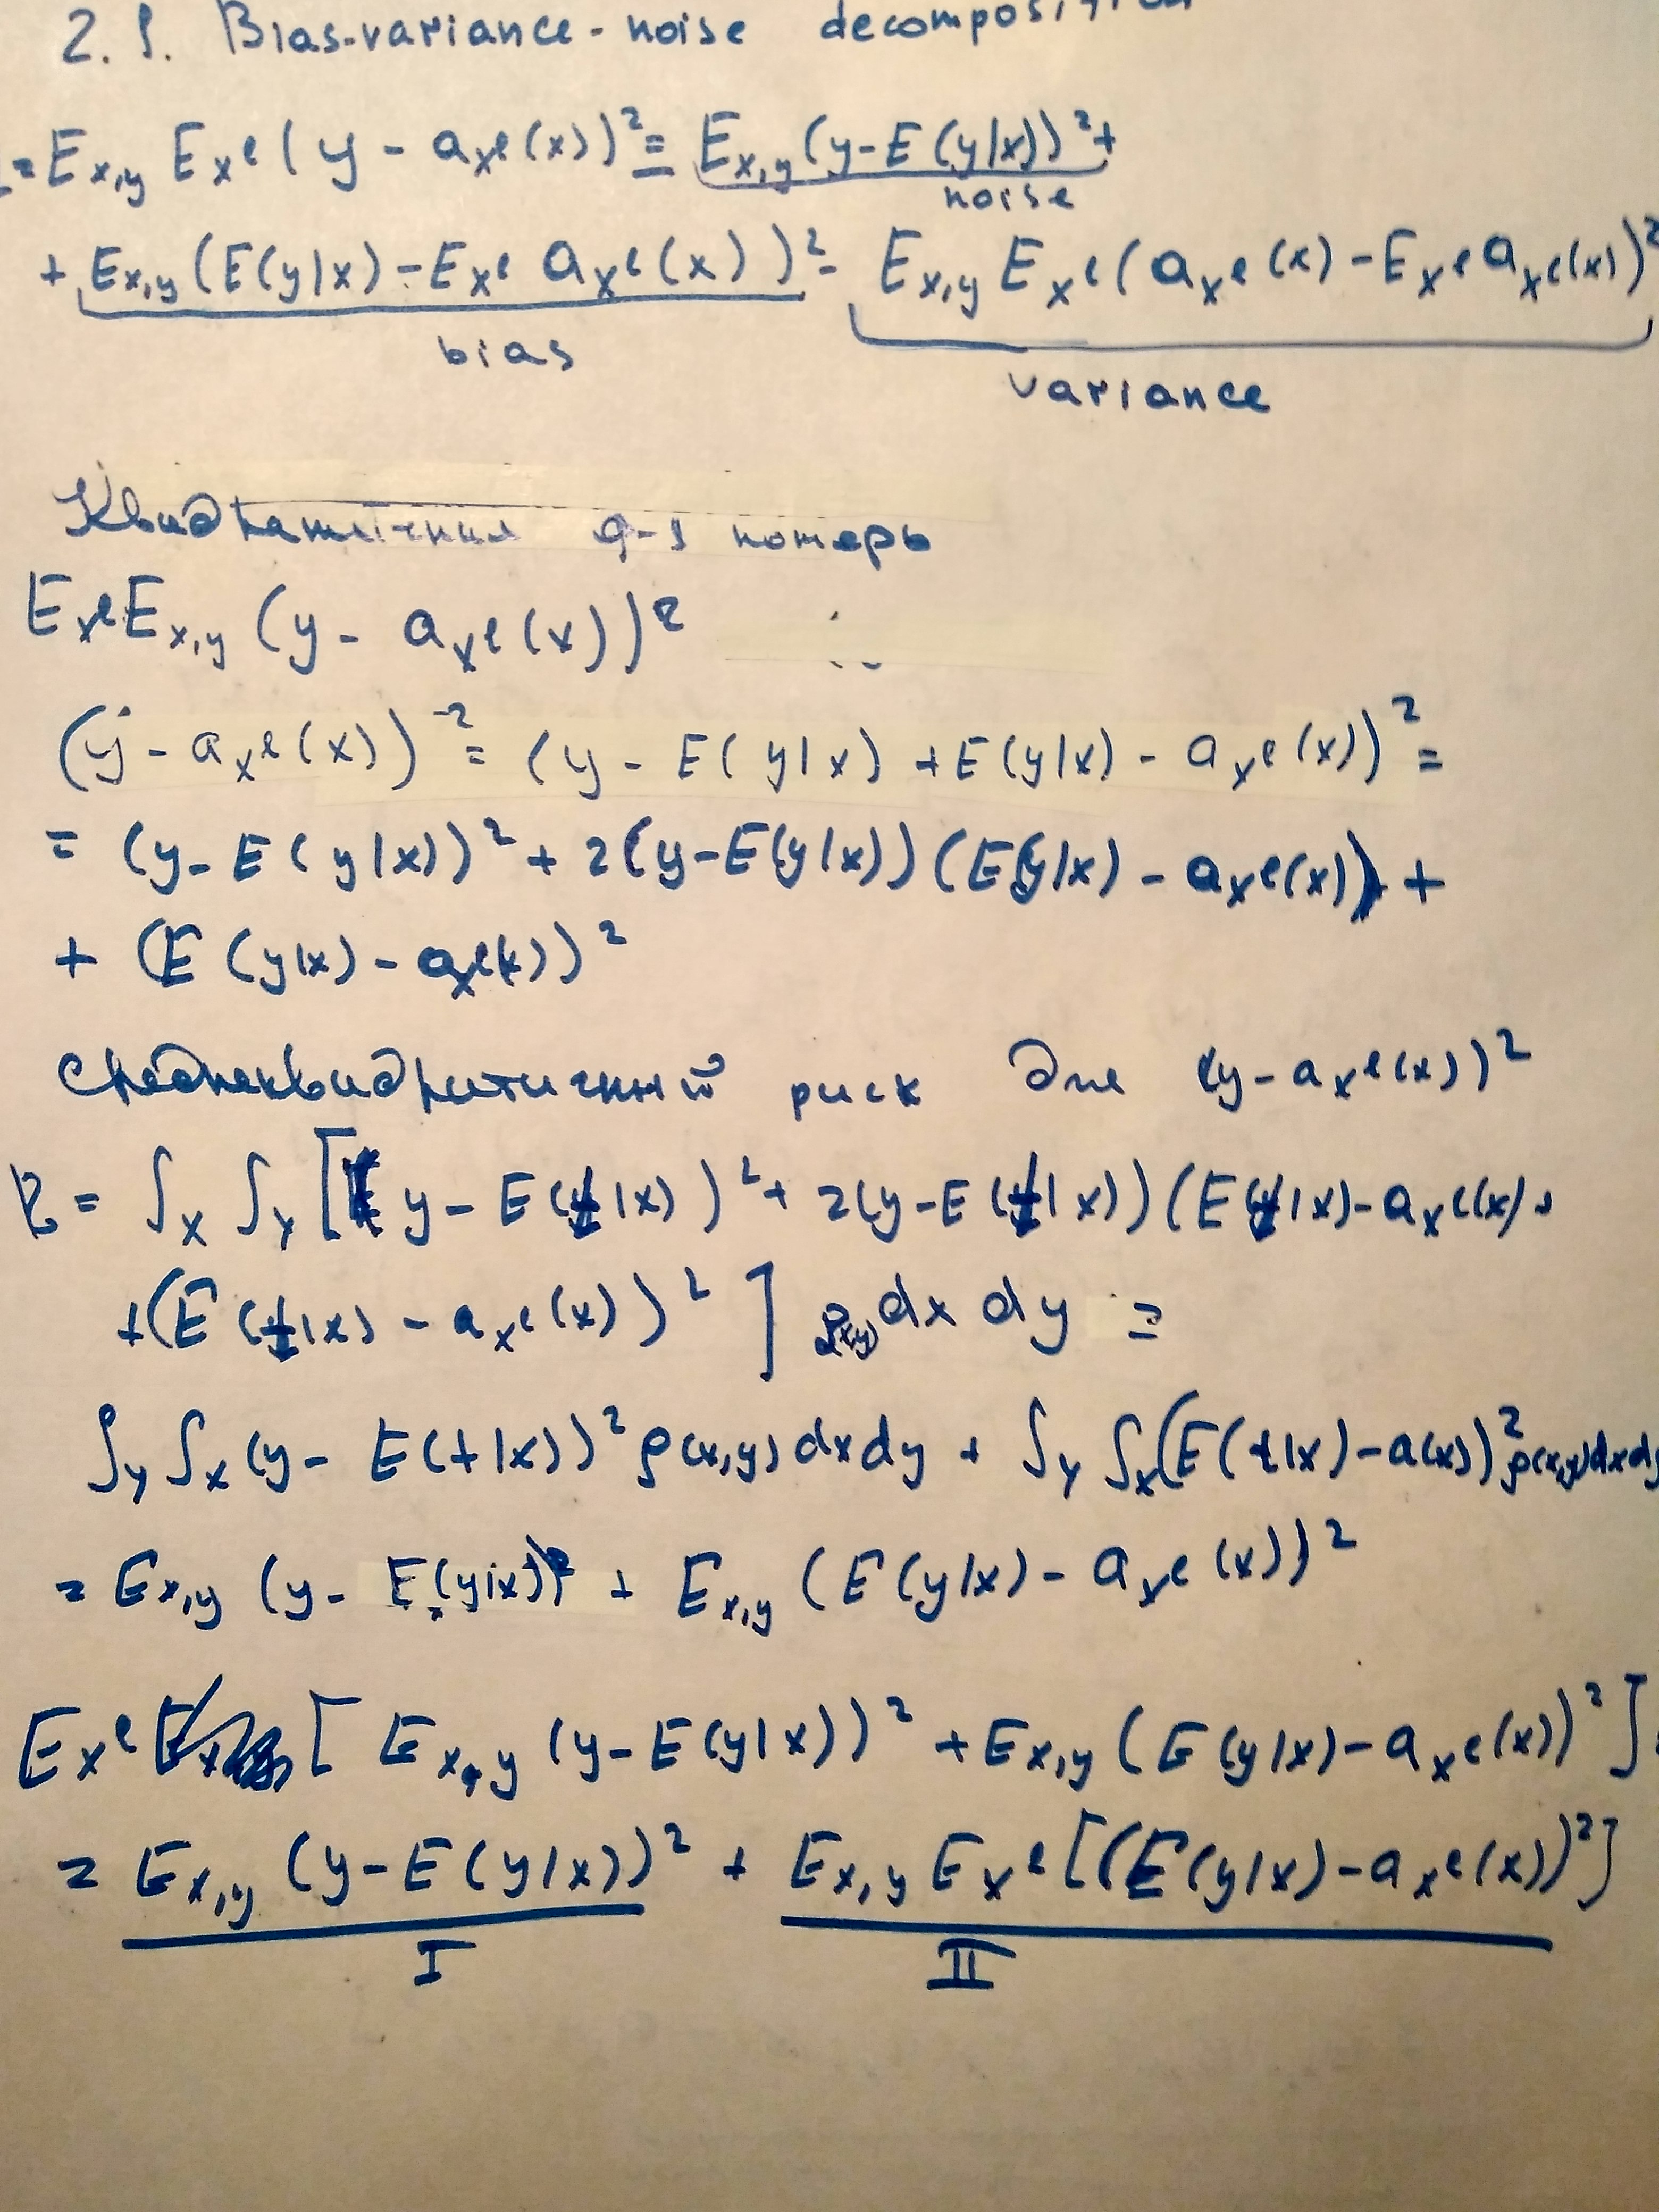 2.1. Bias-variance-noise decomposition
= E_{x,y} E_{X^ℓ}(y - a_{X^ℓ}(x))² = E_{x,y}(y-E(y|x))² +
noise
+ E_{x,y}(E(y|x) - E_{X^ℓ} a_{X^ℓ}(x))² - E_{x,y} E_{X^ℓ}(a_{X^ℓ}(x) - E_{X^ℓ} a_{X^ℓ}(x))²
bias
variance
Квадратичная ф-я потерь
E_{X^ℓ} E_{x,y} (y - a_{X^ℓ}(x))²
(y - a_{X^ℓ}(x))² = (y - E(y|x) + E(y|x) - a_{X^ℓ}(x))² =
= (y - E(y|x))² + 2(y-E(y|x))(E(y|x) - a_{X^ℓ}(x)) +
+ (E(y|x) - a_{X^ℓ}(x))²
Среднеквадратичный риск для (y - a_{X^ℓ}(x))²
R = ∫_X ∫_Y [(y - E(t|x))² + 2(y - E(t|x))(E(t|x) - a_{X^ℓ}(x) +
+(E(t|x) - a_{X^ℓ}(x))²] ρ(x,y) dx dy =
∫_Y ∫_X (y - E(t|x))² ρ(x,y) dx dy + ∫_Y ∫_X (E(t|x) - a(x))² ρ(x,y) dx dy
= E_{x,y} (y - E(y|x))² + E_{x,y} (E(y|x) - a_{X^ℓ}(x))²
E_{X^ℓ} [E_{x,y} (y - E(y|x))² + E_{x,y} (E(y|x) - a_{X^ℓ}(x))²] =
= E_{x,y} (y - E(y|x))² + E_{x,y} E_{X^ℓ} [(E(y|x) - a_{X^ℓ}(x))²]
I II